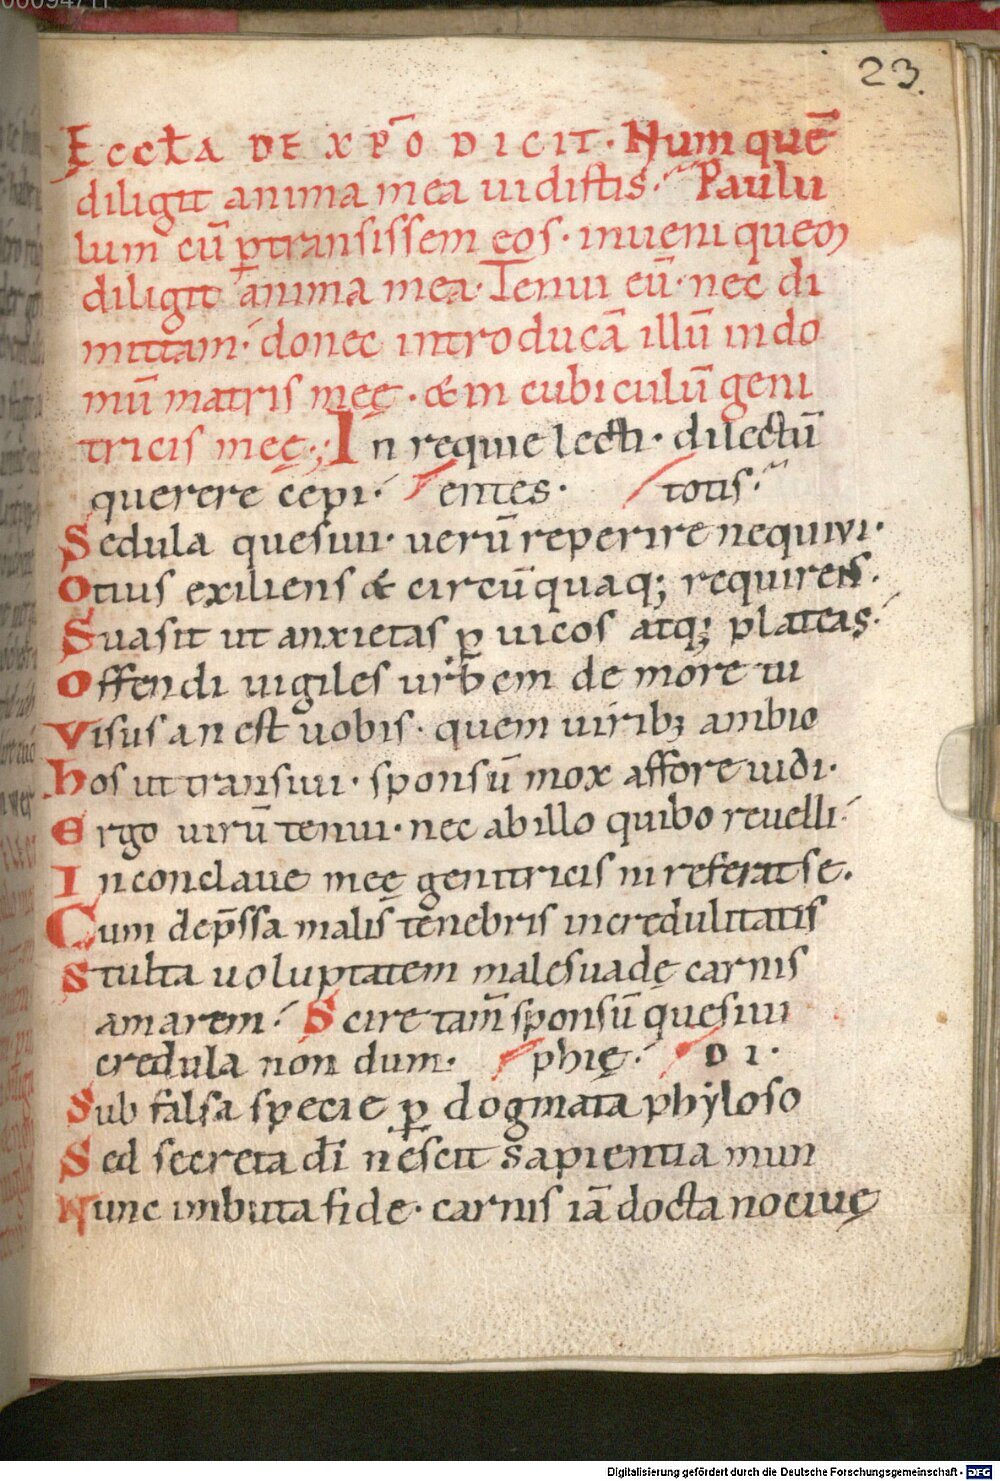 23.
Eccła DE XP̄O DICIT. Num quē
diligit anima mea uidistis. Paulu
lum cū ꝑtransissem eos. inueni quem
diligit anima mea. Tenui eū. nec di
mittam. donec introducā illū in do
mū matris meę. & in cubiculū geni
tricis meę. In requie lecti. dilectū
querere cepi. entes. totis.
Sedula quesiui. uerū reperire nequivi.
Otius exiliens & circūquaq; requirens.
Suasit ut anxietas ꝑ uicos atq; plateas.
Offendi uigiles urbem de more tu
Visus an est uobis. quem uirib; ambio
Hos ut transiui. sponsū mox affore uidi.
Ergo uirū tenui. nec ab illo quibo reuelli.
In conclaue meę genitricis ni referat se.
Cum dep̄ssa malis tenebris incredulitatis
Stulta uoluptatem malesuadę carnis
amarem. Scire tam̄ sponsū quesiui
credula non dum. phię. DI.
Sub falsa specie ꝑ dogmata phyloso
Sed secreta dī nescit sapientia mun
Nunc imbuta fide. carnis iā docta nociuę
Digitalisierung gefördert durch die Deutsche Forschungsgemeinschaft - DFG